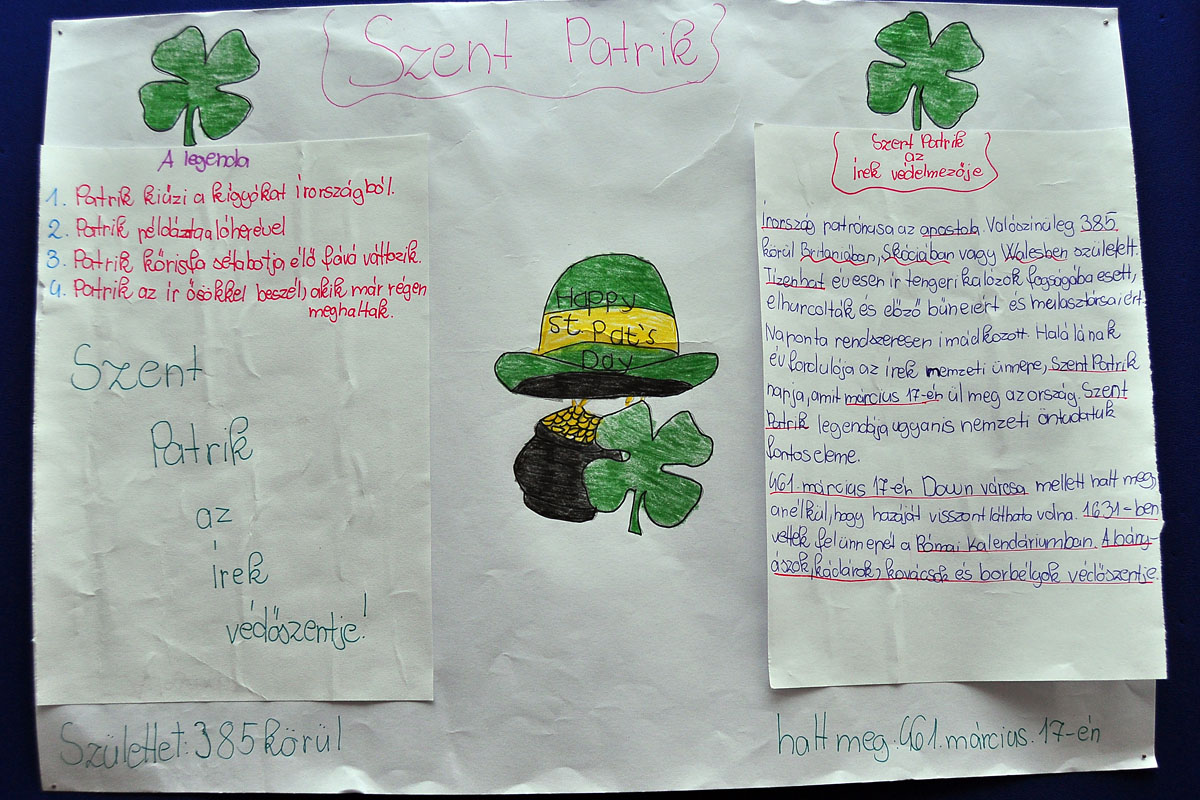 Szent Patrik
A legenda
1. Patrik kiűzi a kígyókat Írországból.
2. Patrik példáztaalóherével
3. Patrik kőrisfa sétabotja élő fává változik.
4. Patrik az ír ősökkel beszél, akik már régen
meghaltak.
Szent
Patrik
az
írek
védőszentje!
Születtet: 385 körül
Happy
St. Pat's
Day
Szent Patrik
az
írek védelmezője
Írország patrónusa az apostola. Valószinüleg 385.
körül Britaniában, Skóciában vagy Walesben született.
Tizenhat évesen ír tengeri kalózok fogságába esett,
elhurcolták és előző bűneiért és mulasztásaiért.
Naponta rendszeresen imádkozott. Halálának
évfordulója az írek nemzeti ünnepe, Szent Patrik
napja, amit március 17-én ül meg az ország. Szent
Patrik legendája ugyanis nemzeti öntudatuk
fontos eleme.
461. március 17-én Down városa mellett halt meg,
anélkül, hogy hazáját viszont láthata volna. 1631-ben
vették fel ünnepét a Római Kalendáriumban. A bány-
ászok, kádárok, kovácsok és borbélyok védőszentje.
halt meg: 461. március. 17-én